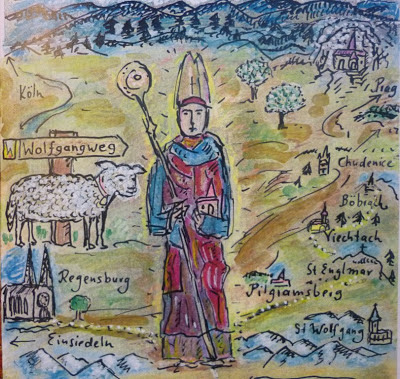 Köln
Prag
W Wolfgangweg
Chudenice
Viechtach
Regensburg
St Englmar
Pilgramsberg
St Wolfgang
Einsiedeln